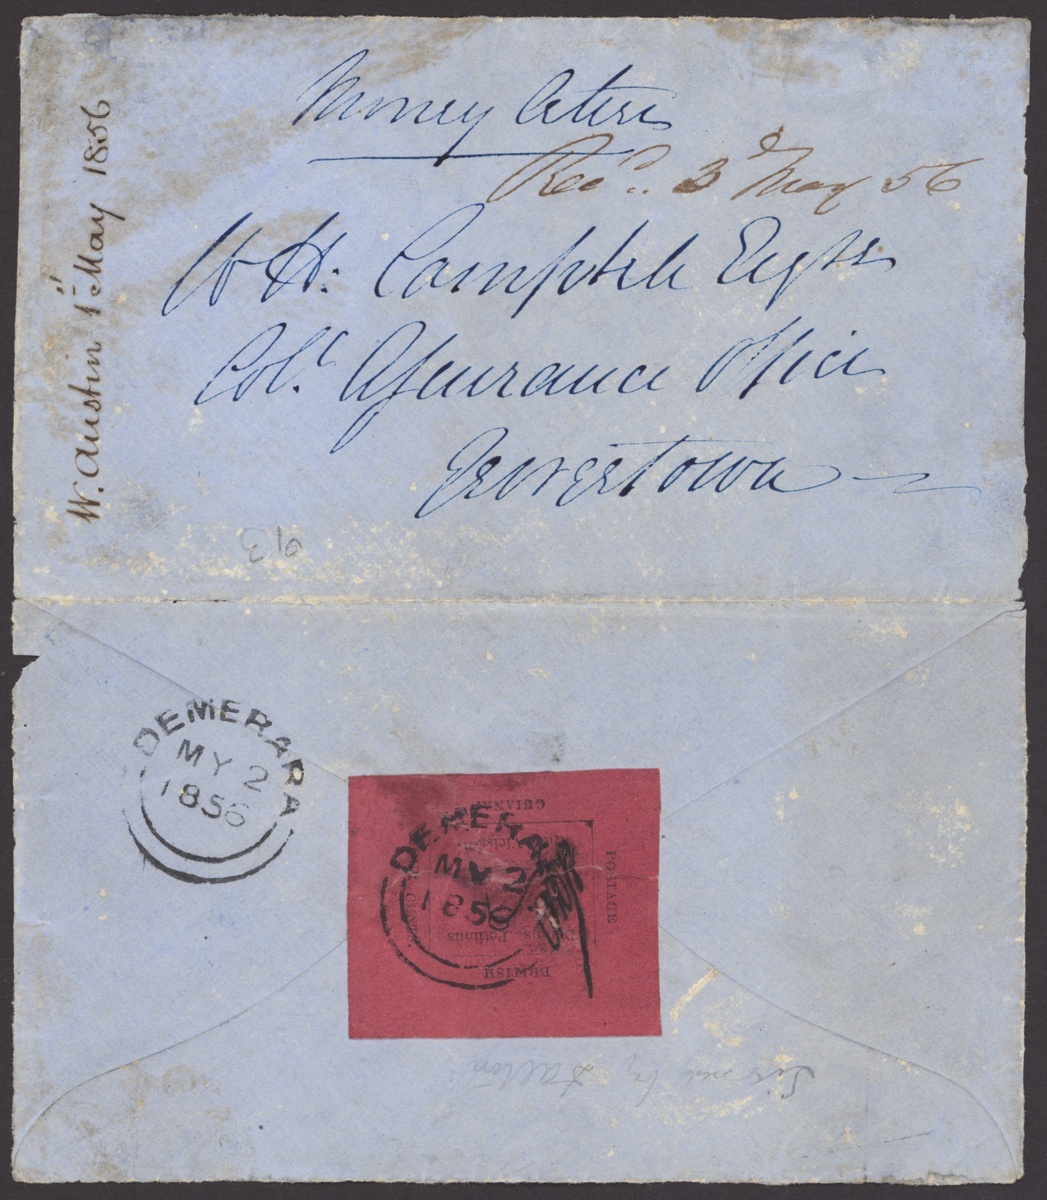 Money Letter
Rec'd. 3d May 56
W H. Campbell Esqre
Col.l Assurance Office
Georgetown
W. Austin 1st May 1856
DEMERARA
MY 2
1856
GUIANA
POSTAGE
DEMERARA
MY 2
1856
Petimus
BRITISH
by Dalton